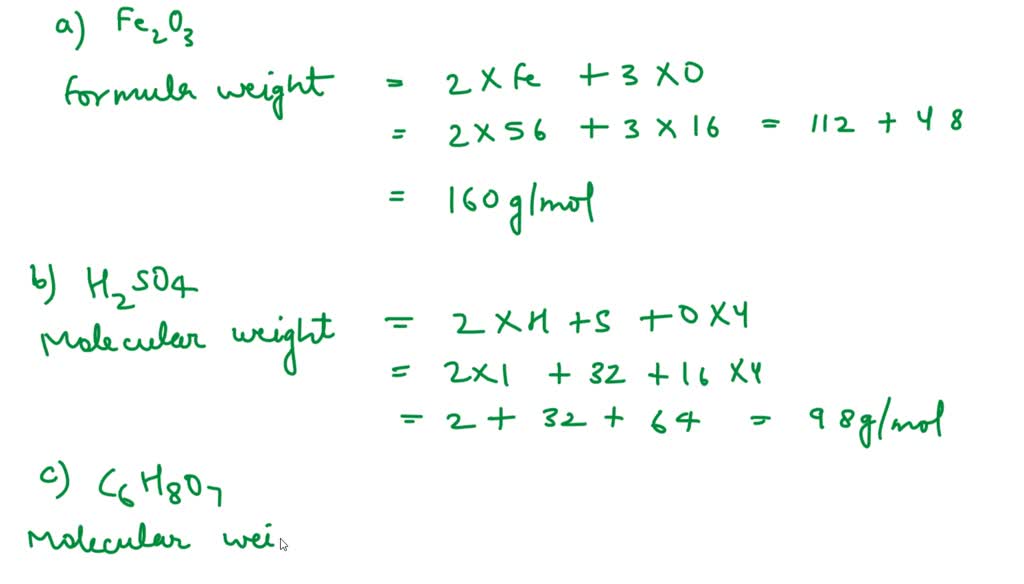 a) Fe₂O₃
formula weight = 2 × Fe + 3 × O
= 2 × 56 + 3 × 16 = 112 + 48
= 160 g/mol
b) H₂SO4
Molecular weight = 2 × H + S + O × 4
= 2×1 + 32 + 16 × 4
= 2 + 32 + 64 = 98 g/mol
c) C₆H₈O₇
Molecular wei